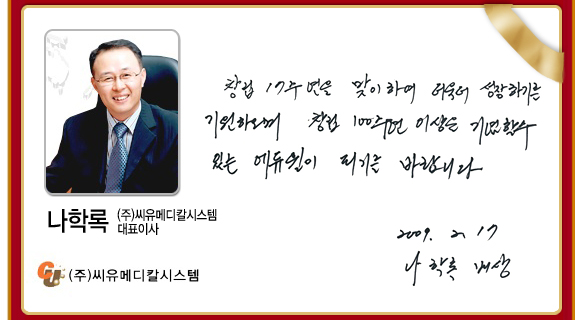 창립 17주년을 맞이하여 더욱더 성장하기를
기원하오며 창립 100주년 이상을 기념할수
있는 에듀윌이 되기를 바랍니다
2009. 2. 17
나 학 록 배상
나학록 (주)씨유메디칼시스템
대표이사
(주)씨유메디칼시스템